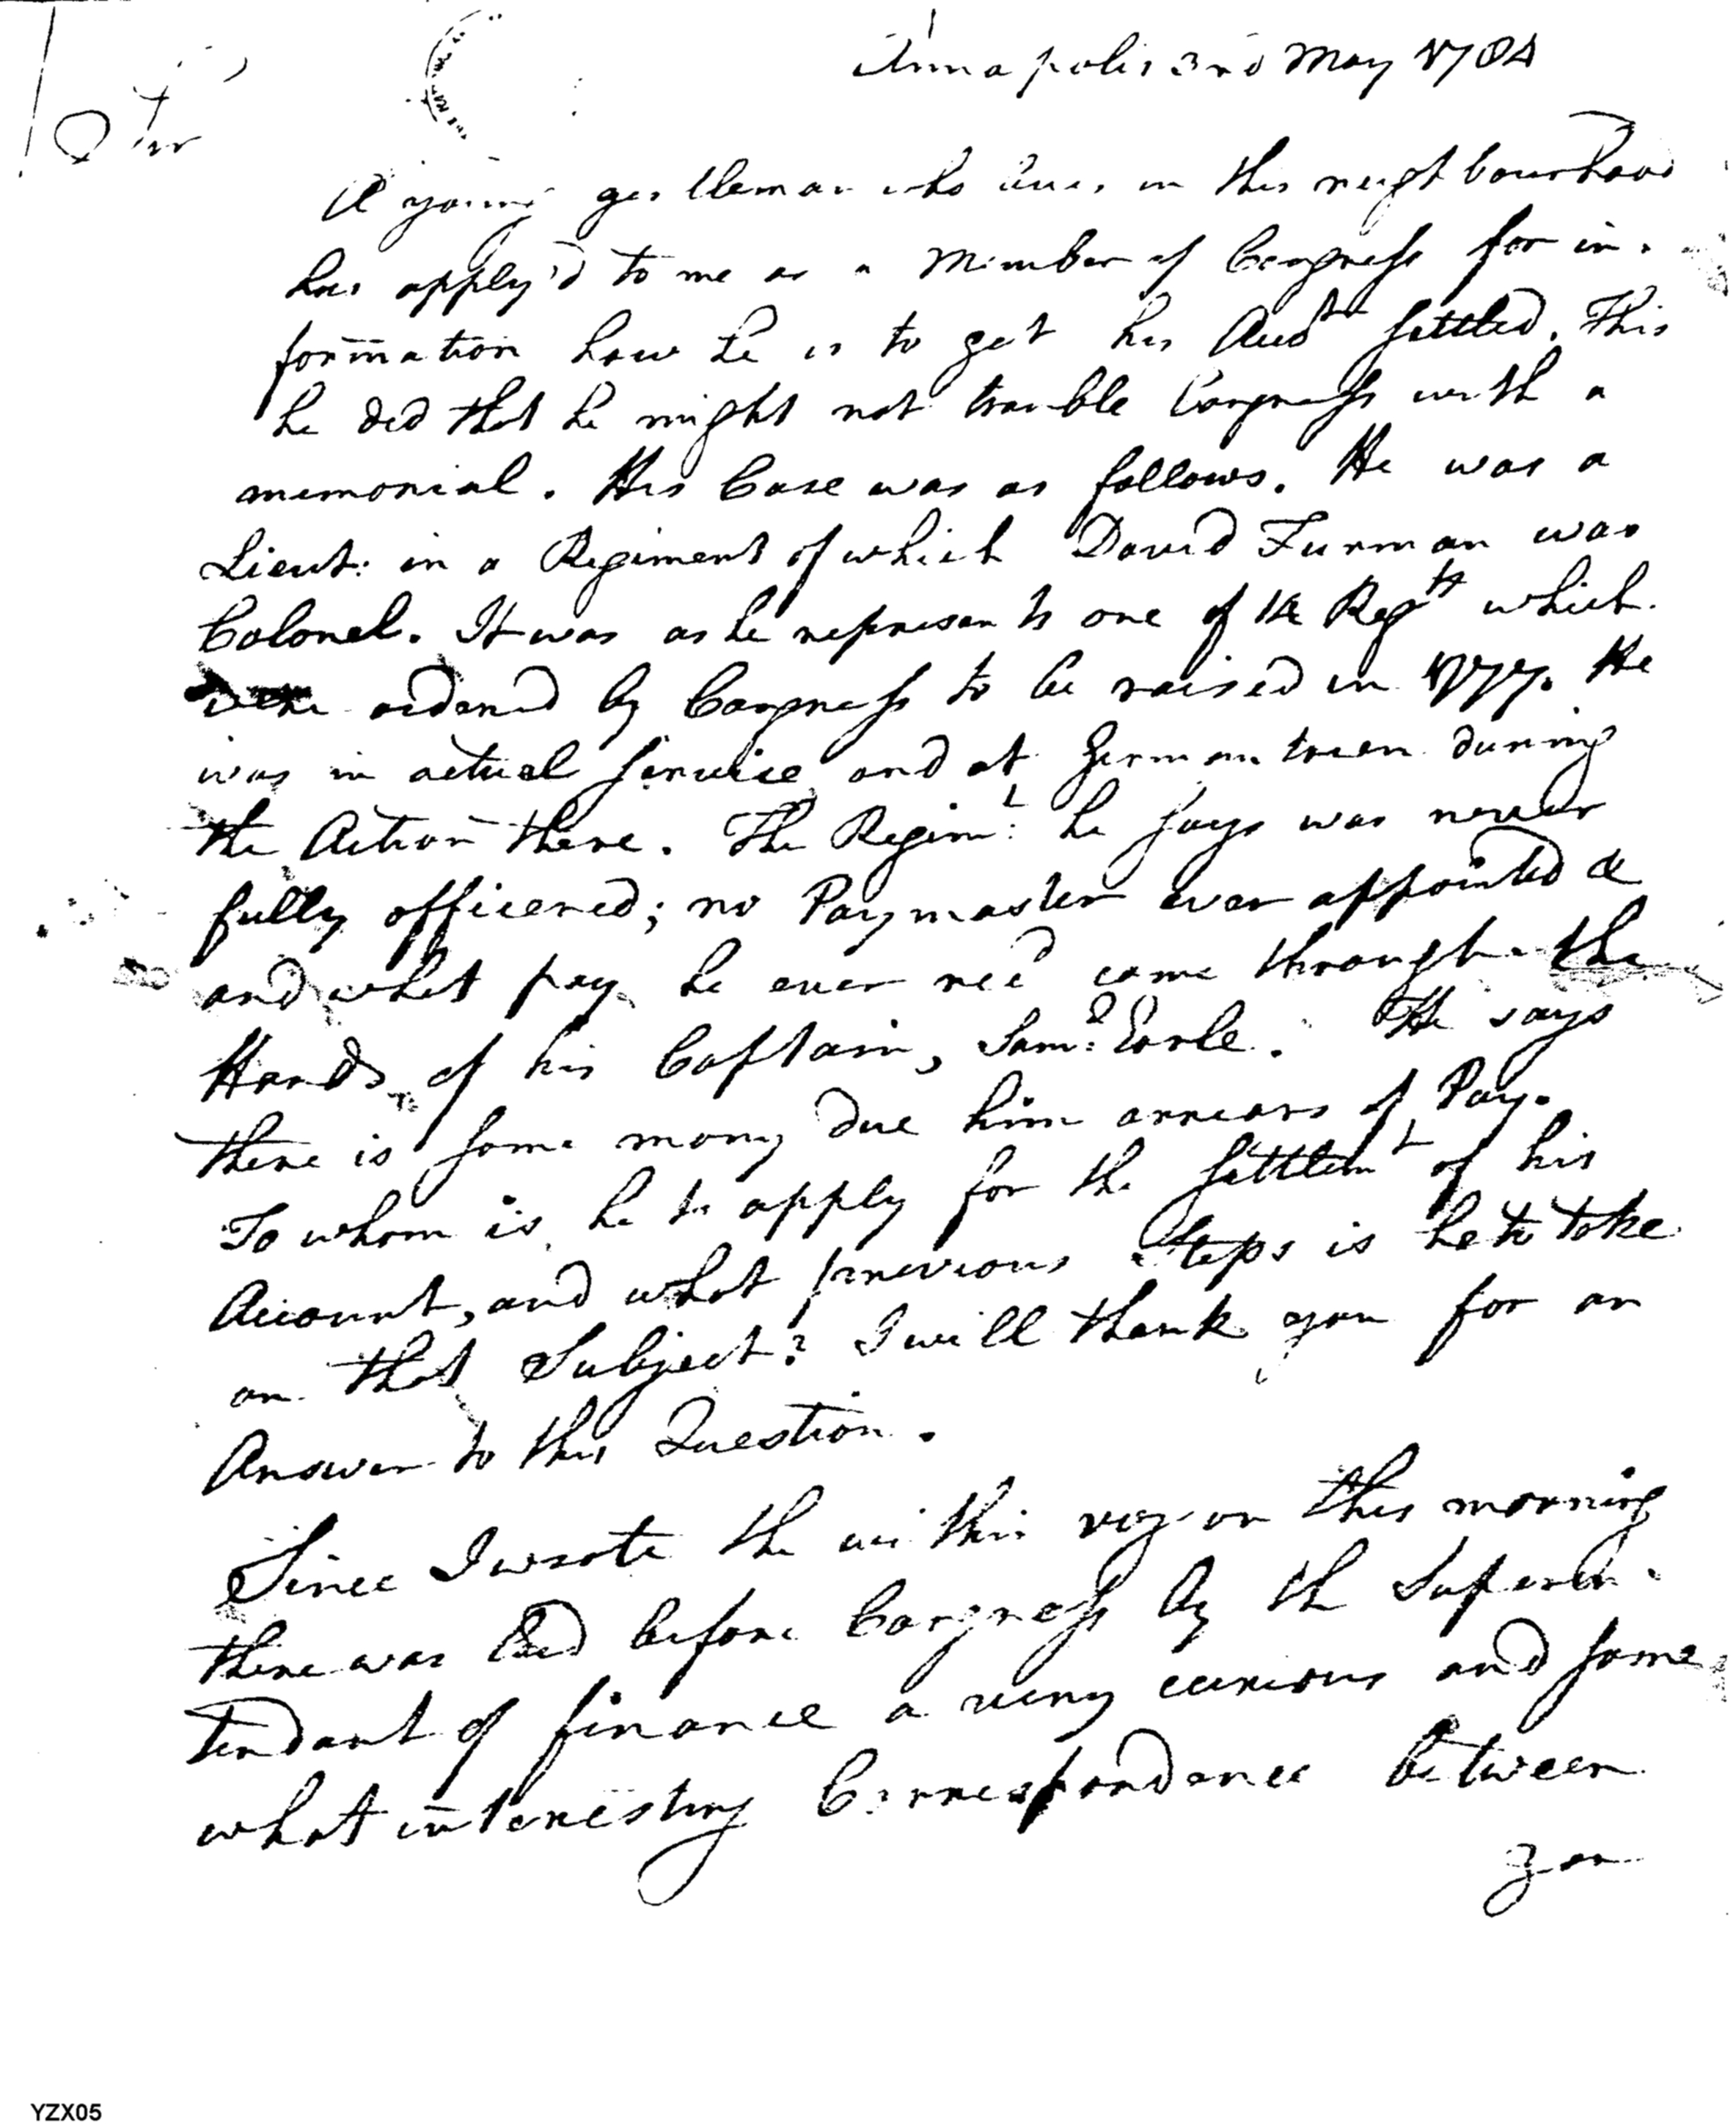 Annapolis 3rd May 1784
Sir
A young gentleman who lives in this neighbourhood
has apply'd to me as a Member of Congress for in-
formation how he is to get his Acct settled. This
he did that he might not trouble Congress with a
memorial. His Case was as follows. He was a
Lieut: in a Regiment of which David Furman was
Colonel. It was as he represents one of 16 Regts which
were ordered by Congress to be raised in 1777. He
was in actual service and at Germantown during
the Action there. The Regimt: he says was never
fully officered; no Paymaster ever appointed &
and what pay he ever recd came through the
Hands of his Captain, Saml: Earle. He says
there is some mony due him arrears of Pay.
To whom is he to apply for the settlemt of his
Account, and what previous steps is he to take
on that Subject? I will thank you for an
Answer to this Question.
Since I wrote the within viz. on this morning
there was laid before Congress by th Superin-
tendant of finance a very curious and some
what interesting Correspondence between